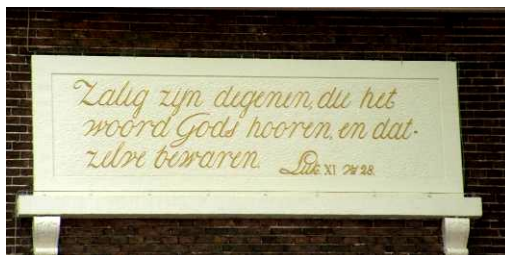 Zalig zijn degenen, die het
woord Gods hooren, en dat-
zelve bewaren. Luk. XI vs 28.